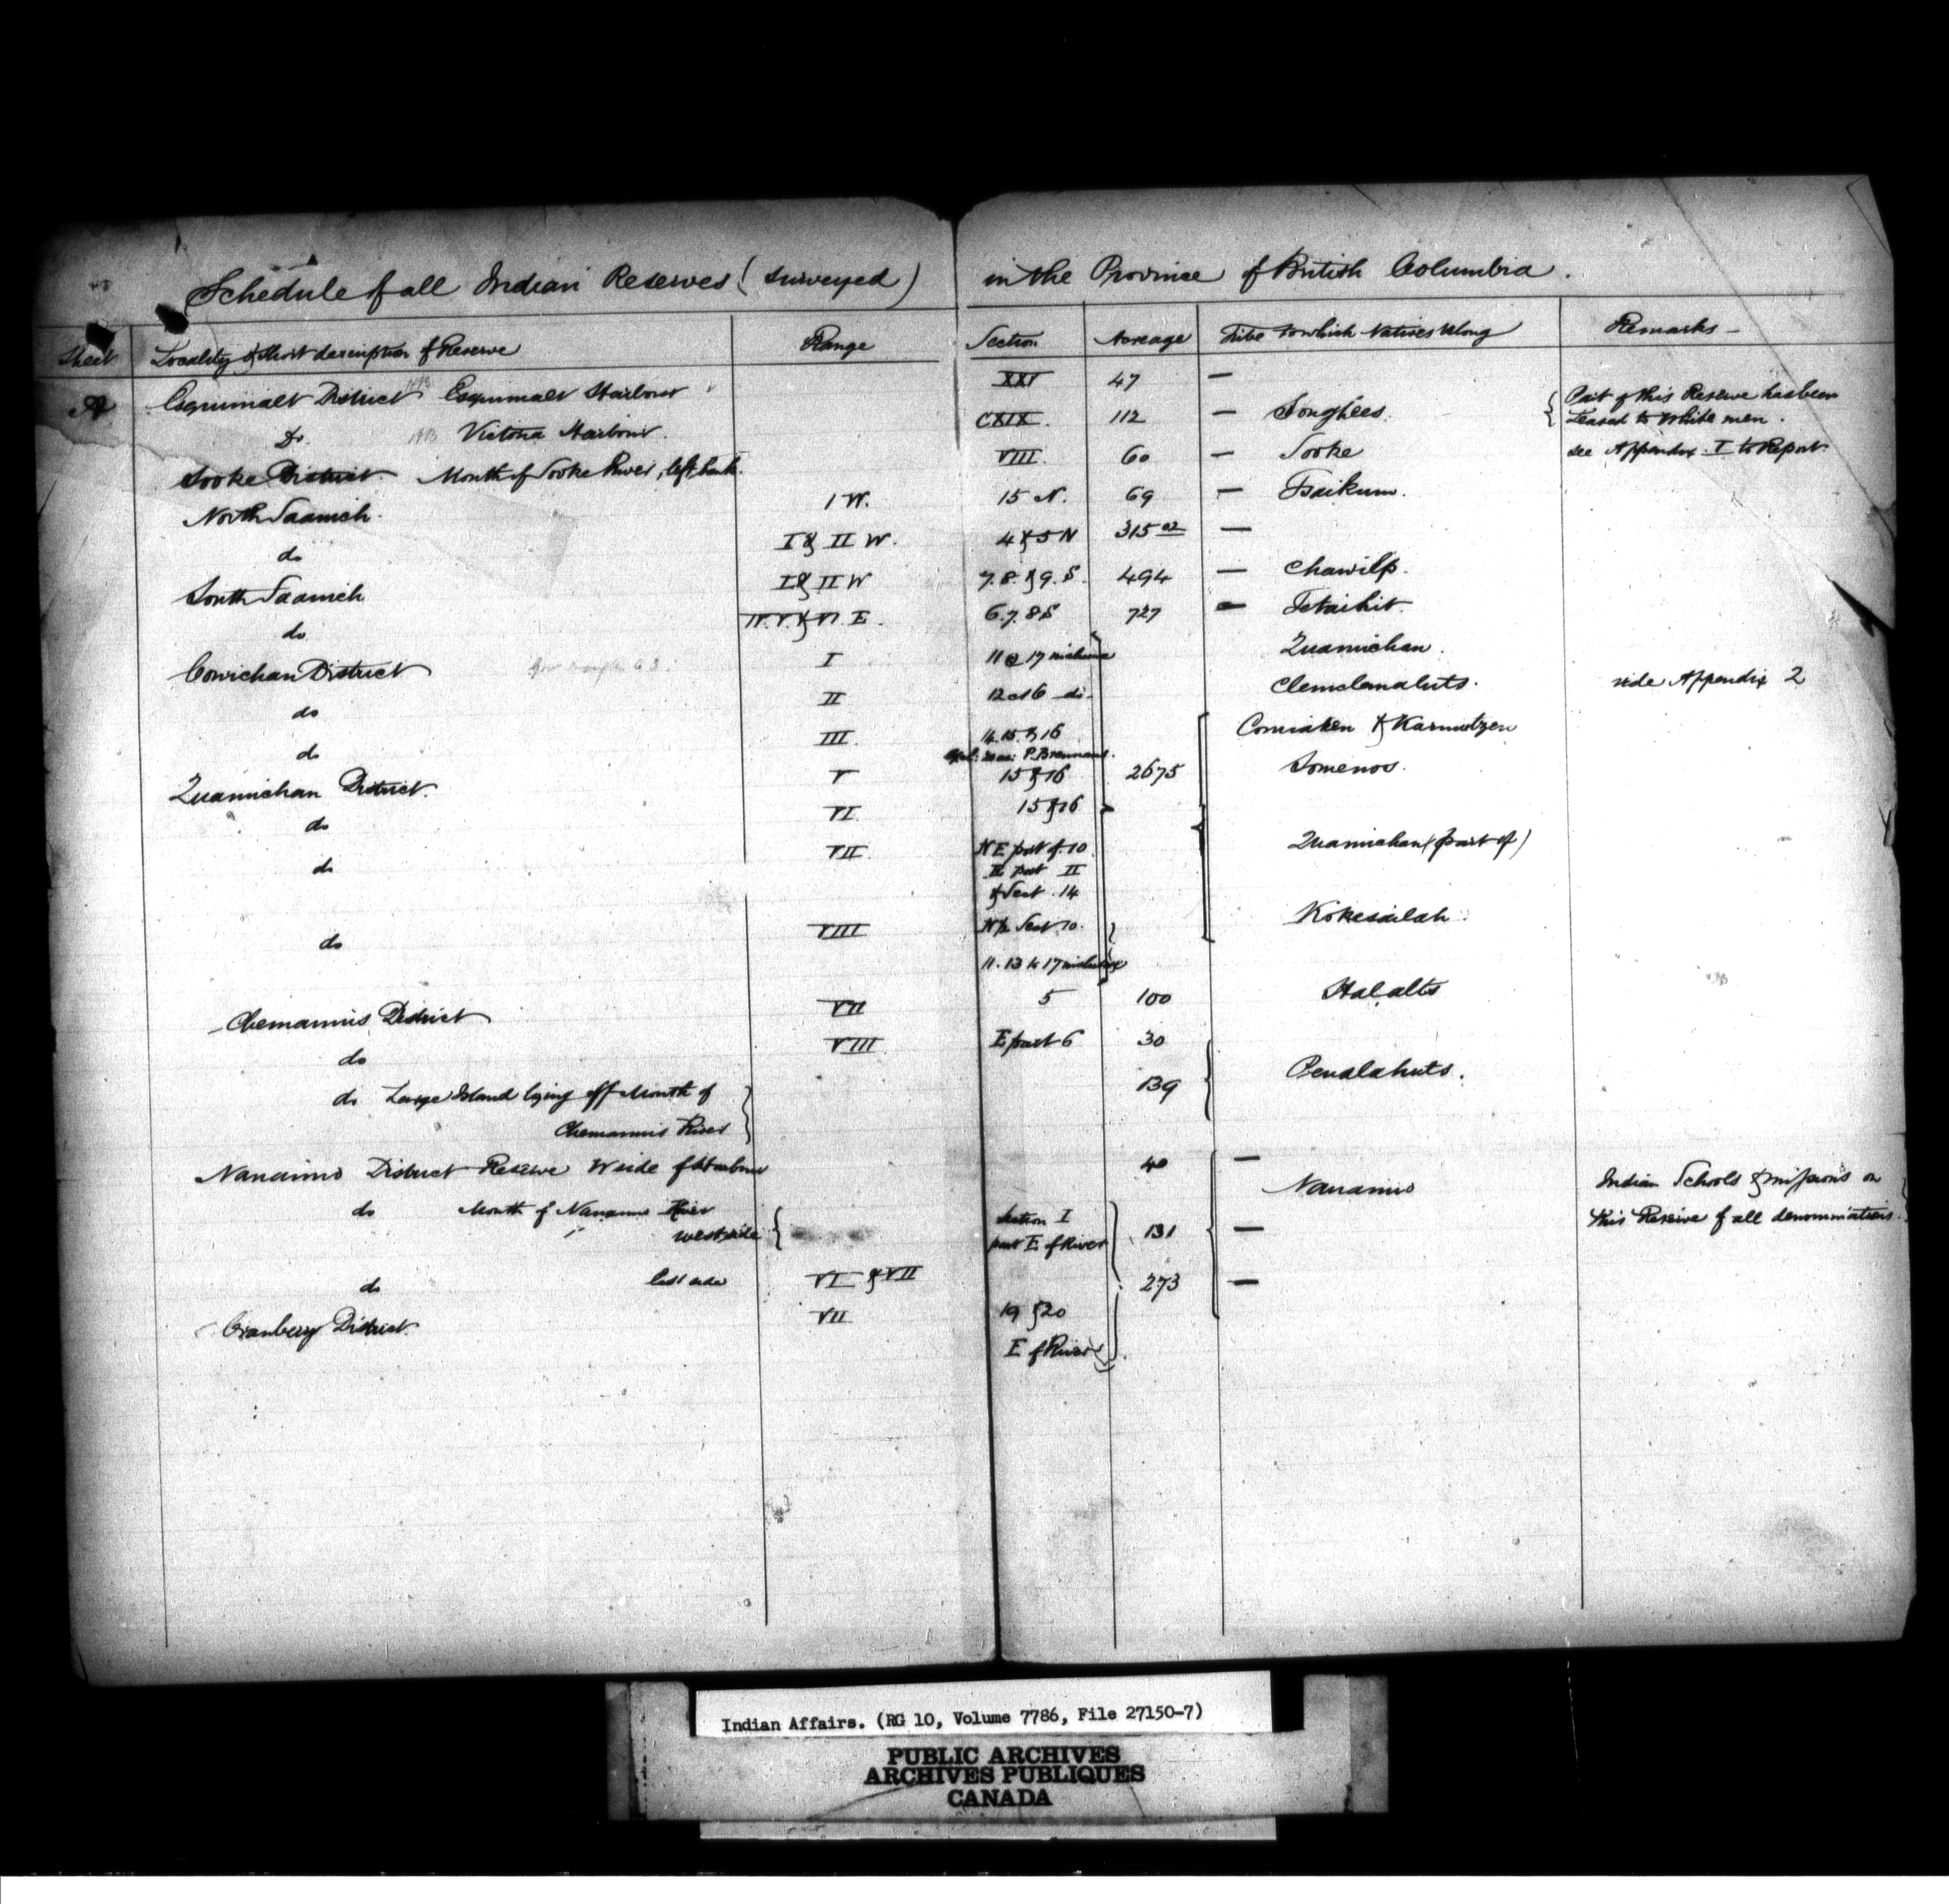 Schedule of all Indian Reserves (surveyed) in the Province of British Columbia.
Sheet Locality & short description of Reserve Range Section Acreage Tribe to which Natives belong Remarks
A Esquimalt District Esquimalt Harbour XXV 47 —
Do. Victoria Harbour. CXIX. 112 — Songhees. { Part of this Reserve has been Leased to White men.
Sooke District. Mouth of Sooke River, left bank. VIII. 60 — Sooke see Appendix I to Report.
North Saanich. 1 W. 15 N. 69 — Tsaikum.
do I & II W. 4 & 5 N 315 02 —
South Saanich I & II W 7. 8. & 9. S. 494 — Chawilp.
do IV. V. & VI. E. 6. 7. 8 S 727 — Tetaihit.
Cowichan District I 11 @ 17 inclusive Quamichan.
do II 12 @ 16 do. Clemclemaluts. vide Appendix 2
do III. 14. 15. & 16 Comiaken & Karmutzen
P. Brennans.
Quamichan District. V 15 & 16 2675 Somenos.
do VI. 15 & 16
do VII. NE part of 10. Quamichan (part of)
part II
& Sect. 14
do VIII N ½ Sect. 10. Kokesailah.
11. 13 to 17 inclusive
Chemainus District VII 5 100 Halalts
do VIII E part 6 30
do Large Island lying off Mouth of 139 Penalahuts.
Chemainus River
Nanaimo District Reserve W side of Harbour 40 —
do Mouth of Nanaimo River Section I Nanaimo Indian Schools & missions on
west side { part E. of River 131 — this Reserve of all denominations.
do East side VI & VII 273 —
Cranberry District. VII 19 & 20
E of River
Indian Affairs. (RG 10, Volume 7786, File 27150-7)
PUBLIC ARCHIVES
ARCHIVES PUBLIQUES
CANADA